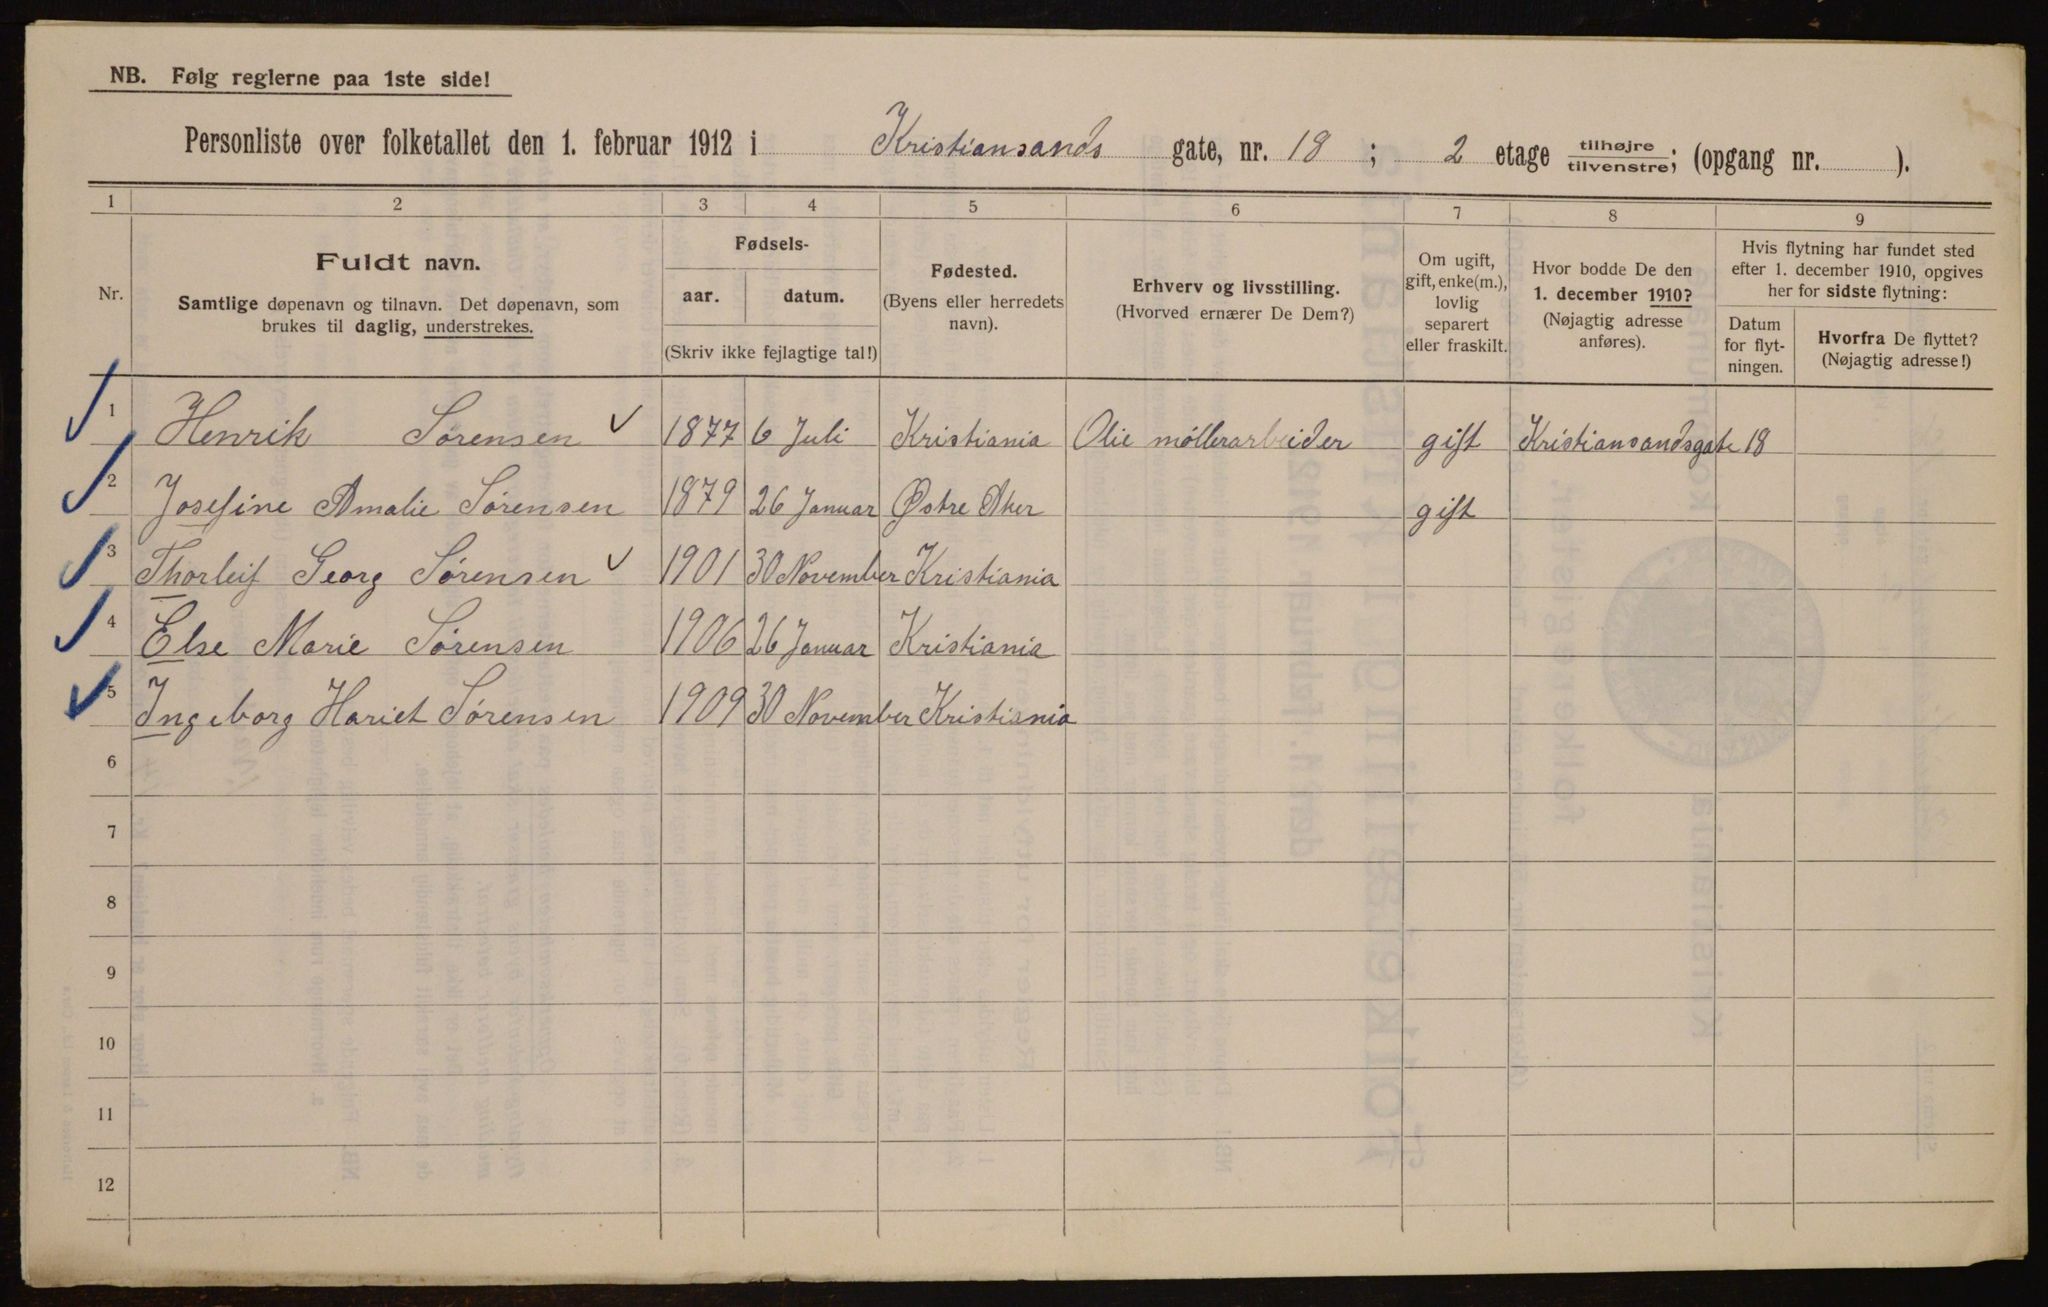 NB. Følg reglerne paa 1ste side!
Personliste over folketallet den 1. februar 1912 i Kristiansands gate, nr. 18 ; 2 etage tilhøjre/tilvenstre; (opgang nr. ).
1 2 3 4 5 6 7 8 9
Nr.
Fuldt navn.
Samtlige døpenavn og tilnavn. Det døpenavn, som
brukes til daglig, understrekes.
Fødsels-
aar. datum.
(Skriv ikke fejlagtige tal!)
Fødested.
(Byens eller herredets
navn).
Erhverv og livsstilling.
(Hvorved ernærer De Dem?)
Om ugift,
gift, enke(m.),
lovlig
separert
eller fraskilt.
Hvor bodde De den
1. december 1910?
(Nøjagtig adresse
anføres).
Hvis flytning har fundet sted
efter 1. december 1910, opgives
her for sidste flytning:
Datum
for flyt-
ningen.
Hvorfra De flyttet?
(Nøjagtig adresse!)
1 Henrik Sørensen 1877 6 Juli Kristiania Olie møllerarbeider gift Kristiansandsgate 18
2 Josefine Amalie Sørensen 1879 26 Januar Østre Aker gift
3 Thorleif Georg Sørensen 1901 30 November Kristiania
4 Else Marie Sørensen 1906 26 Januar Kristiania
5 Ingeborg Hariet Sørensen 1909 30 November Kristiania
6
7
8
9
10
11
12